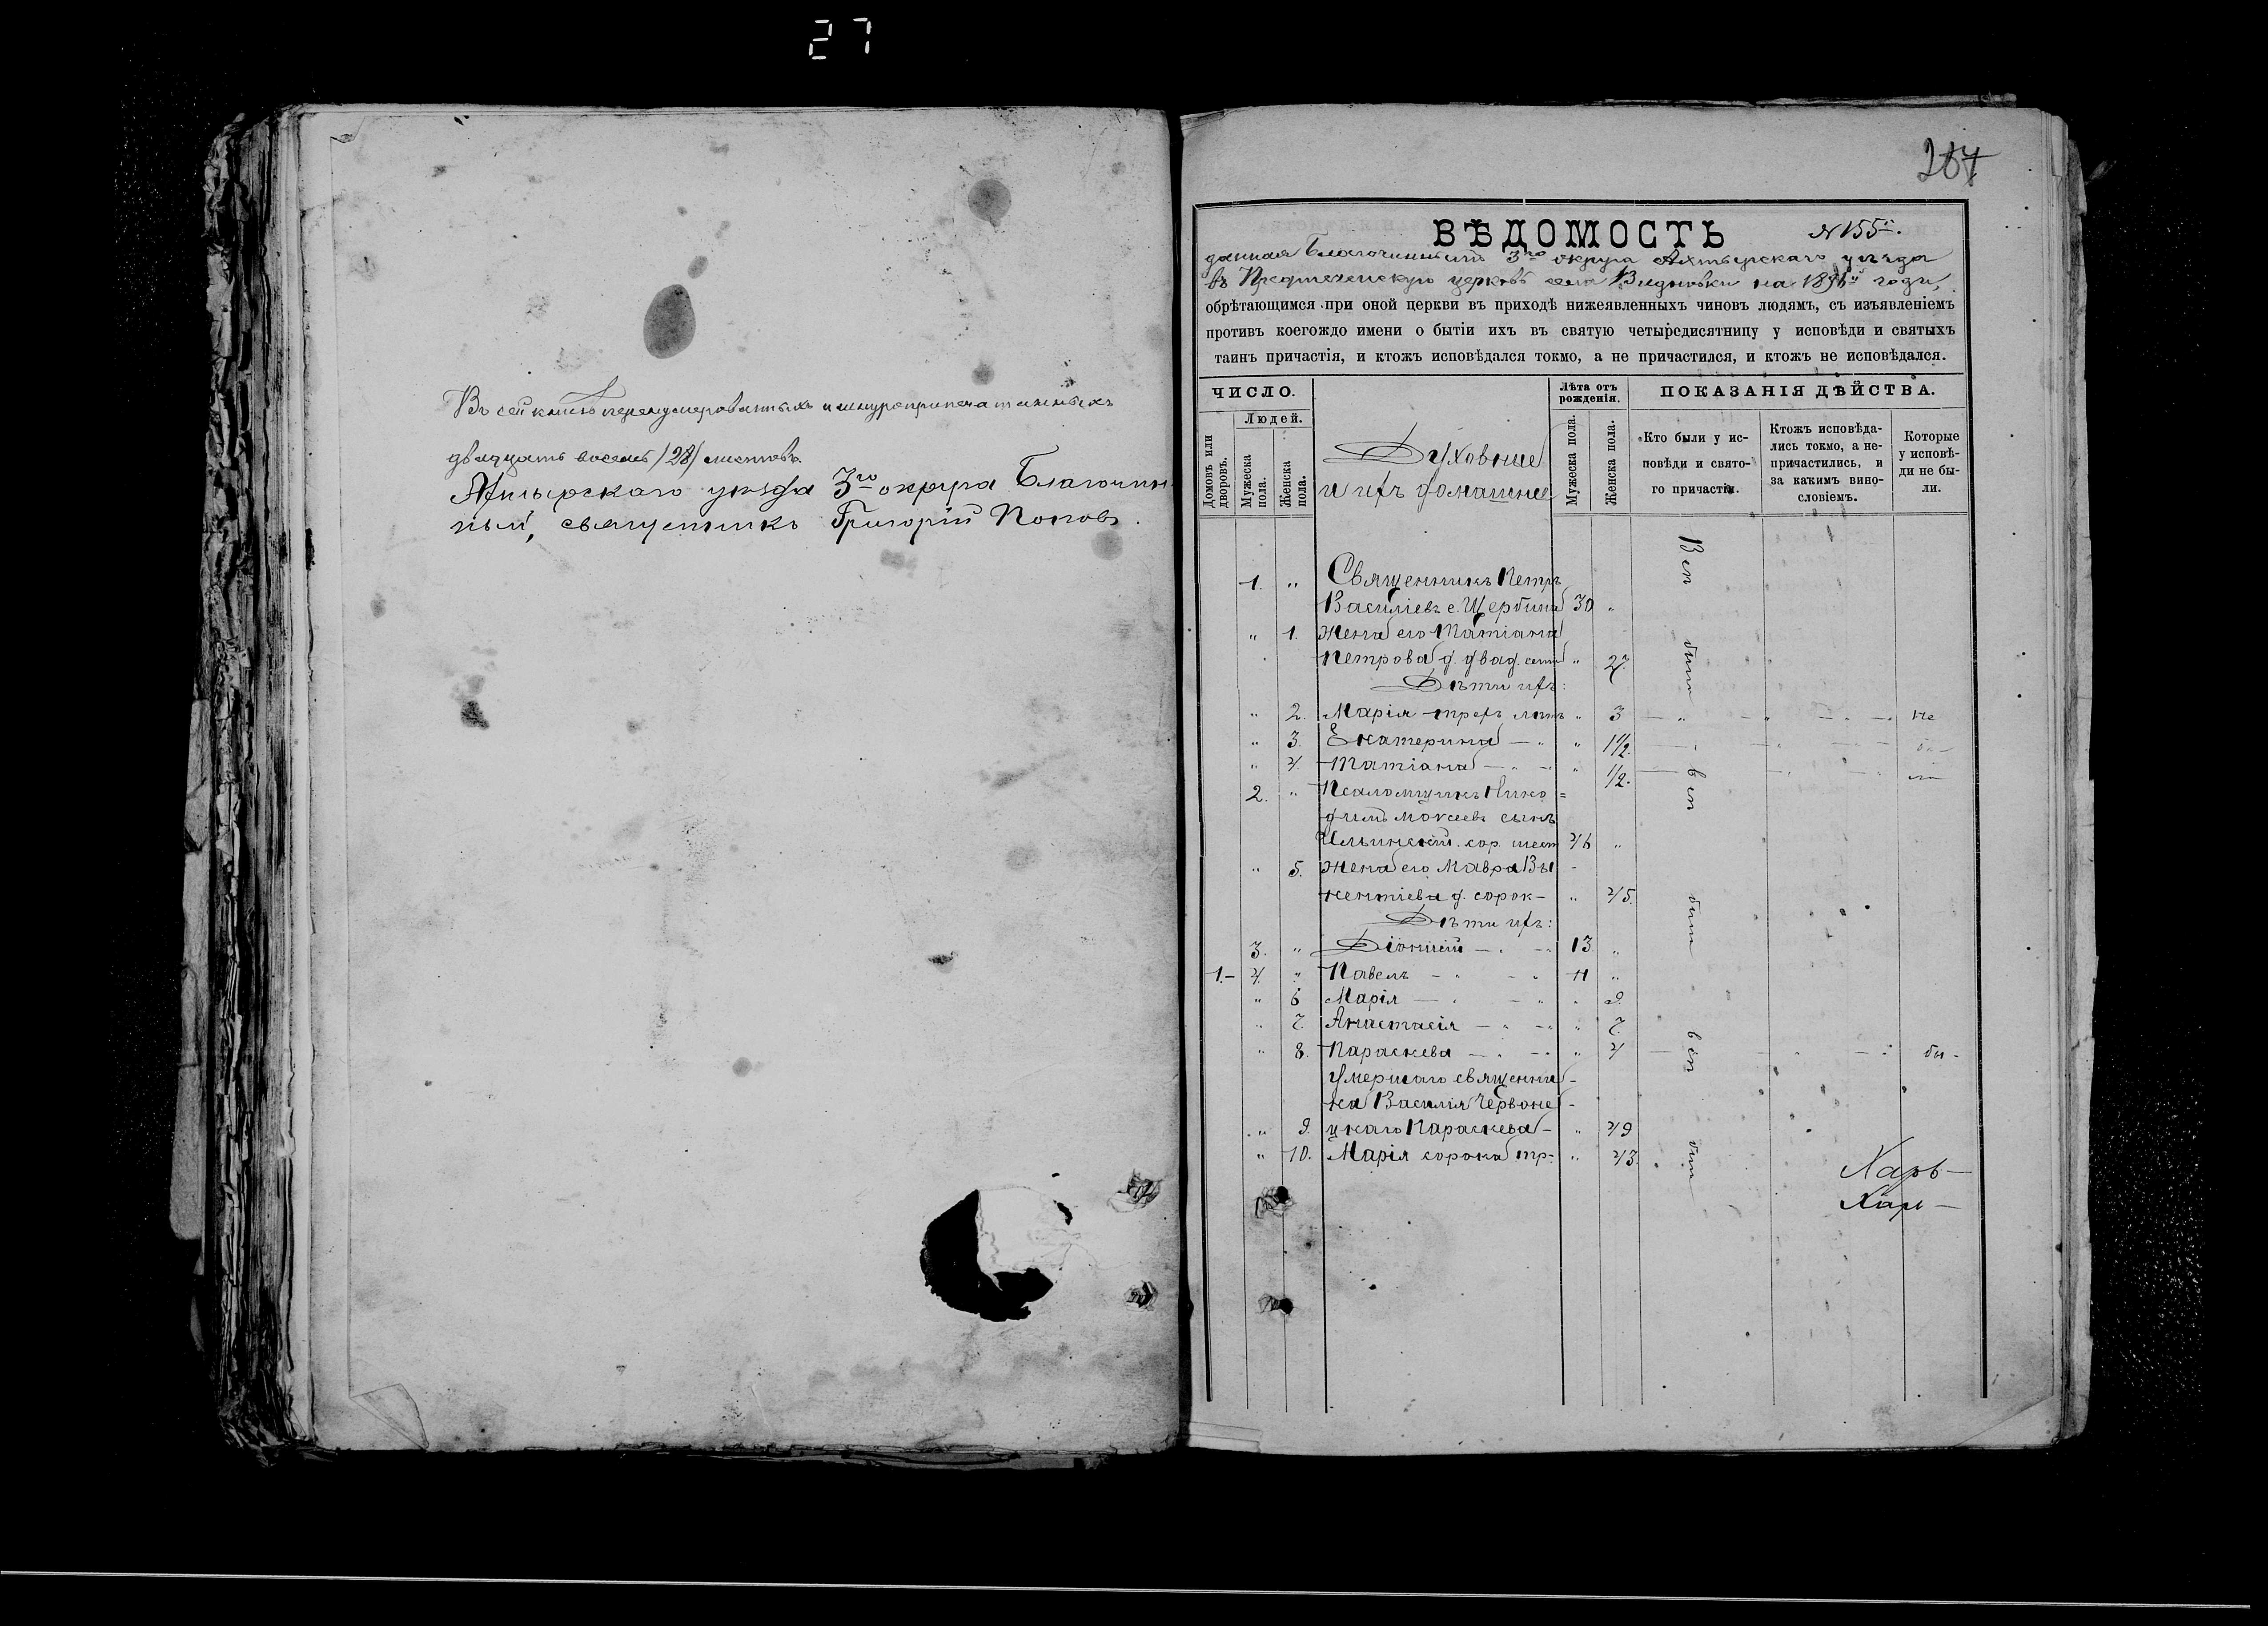 27
Въ сей книгѣ перенумерованныхъ и шнуроприпечатанныхъ
двадцать восемь /28/ листовъ.
Ахтырскаго уѣзда 3го округа Благочин
ный, священникъ Григорій Поповъ.
ВѢДОМОСТЬ
№ 155й.
данная Благочиннымъ 3го округа Ахтырскаго уѣзда
въ Предтеченскую церковь села на года,
обрѣтающимся при оной церкви въ приходѣ нижеявленныхъ чиновъ людямъ, съ изъявленіемъ
противъ коегождо имени о бытіи ихъ въ святую четыредисятницу у исповѣди и святыхъ
таинъ причастія, и ктожъ исповѣдался токмо, а не причастился, и ктожъ не исповѣдался.
ЧИСЛО.
Людей.
Домовъ или дворовъ.
Мужеска пола.
Женска пола.
Духовные
и ихъ домашніе
Лѣта отъ рожденія.
Мужеска пола.
Женска пола.
ПОКАЗАНІЯ ДѢЙСТВА.
Кто были у ис-
повѣди и свято-
го причастія.
Ктожъ исповѣда-
лись токмо, а не-
причастились, и
за какимъ вино-
словіемъ.
Которые
у исповѣ-
ди не бы-
ли.
1. " Священникъ Петръ
Василіевъ с. Щербина 30 "
" 1. Жена его Татіана
Петрова д. двад. семи " 27.
Дѣти ихъ:
" 2. Марія трехъ лѣтъ " 3 — " — " — " — не
" 3. Екатерина — " " 1 1/2. бы-
" 4. Татіана — " — " 1/2. ли
2. " Псаломщикъ Нико =
димъ Моѵсеевъ сынъ
Ильинскій. сор. шест 46 "
" 5. Жена его Мавра -
кентіева д. сорок- " 45.
Дѣти ихъ:
3. " Діонисій — " — " 13 "
1.- 4. " Павелъ — " — " 11 "
" 6 Марія — " — " " 9.
" 7. Анастасія — " — " " 7.
" 8. Параскева — " — " " 4 бы-
Умершаго священни-
ка Василія Червоне-
" 9. цкаго Параскева- " 49
" 10. Марія сорока тр- " 43.
Всѣ были всѣ были всѣ были
Харь-